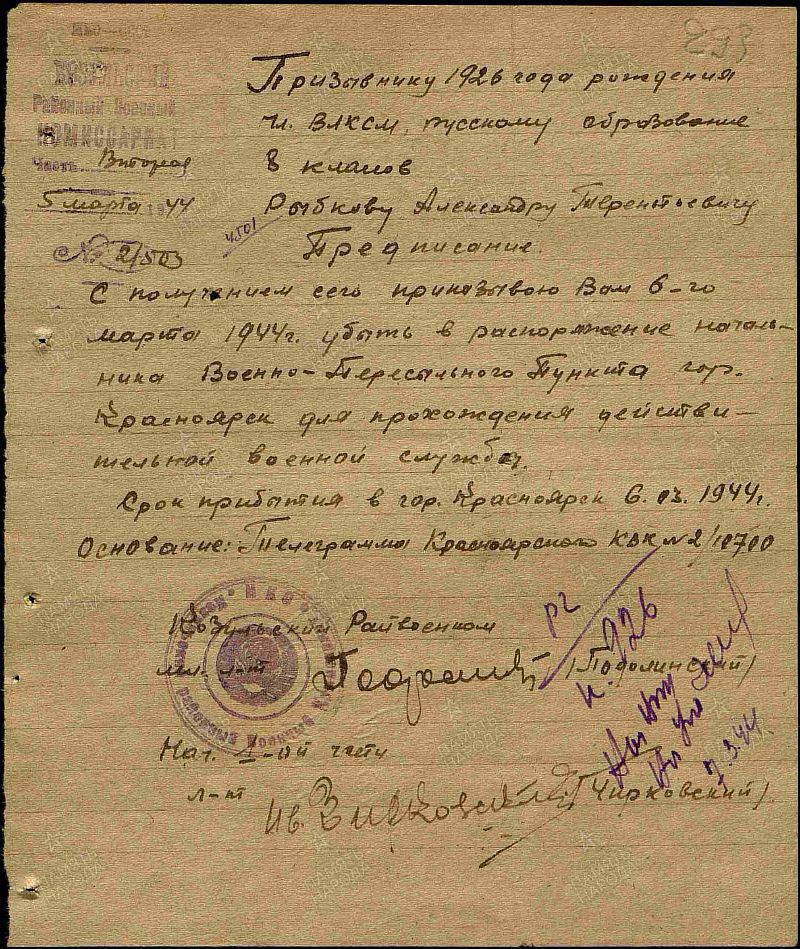 293
НКО-СССР
КОЗУЛЬСКИЙ
Районный Военный
КОМИССАРИАТ
Часть Вторая
5 марта 1944
№ 2/503
4501
Призывнику 1926 года рождения
чл. ВЛКСМ, русскому образование
8 класов
Рыбкову Александру Терентьевичу
Предписание.
С получением сего приказываю Вам 6-го
марта 1944г. убыть в распоряжение началь-
ника Военно-Пересыльного Пункта гор.
Красноярск для прохождения действи-
тельной военной службы.
Срок прибытия в гор. Красноярск 6.03.1944г.
Основание: Телеграмма Красноярского КВК №2/10700
Козульский Райвоенком
мл. л-нт
(Подолинский)
Нач. II-ой части
л-нт
(Чирковский)
926
7.3.44.